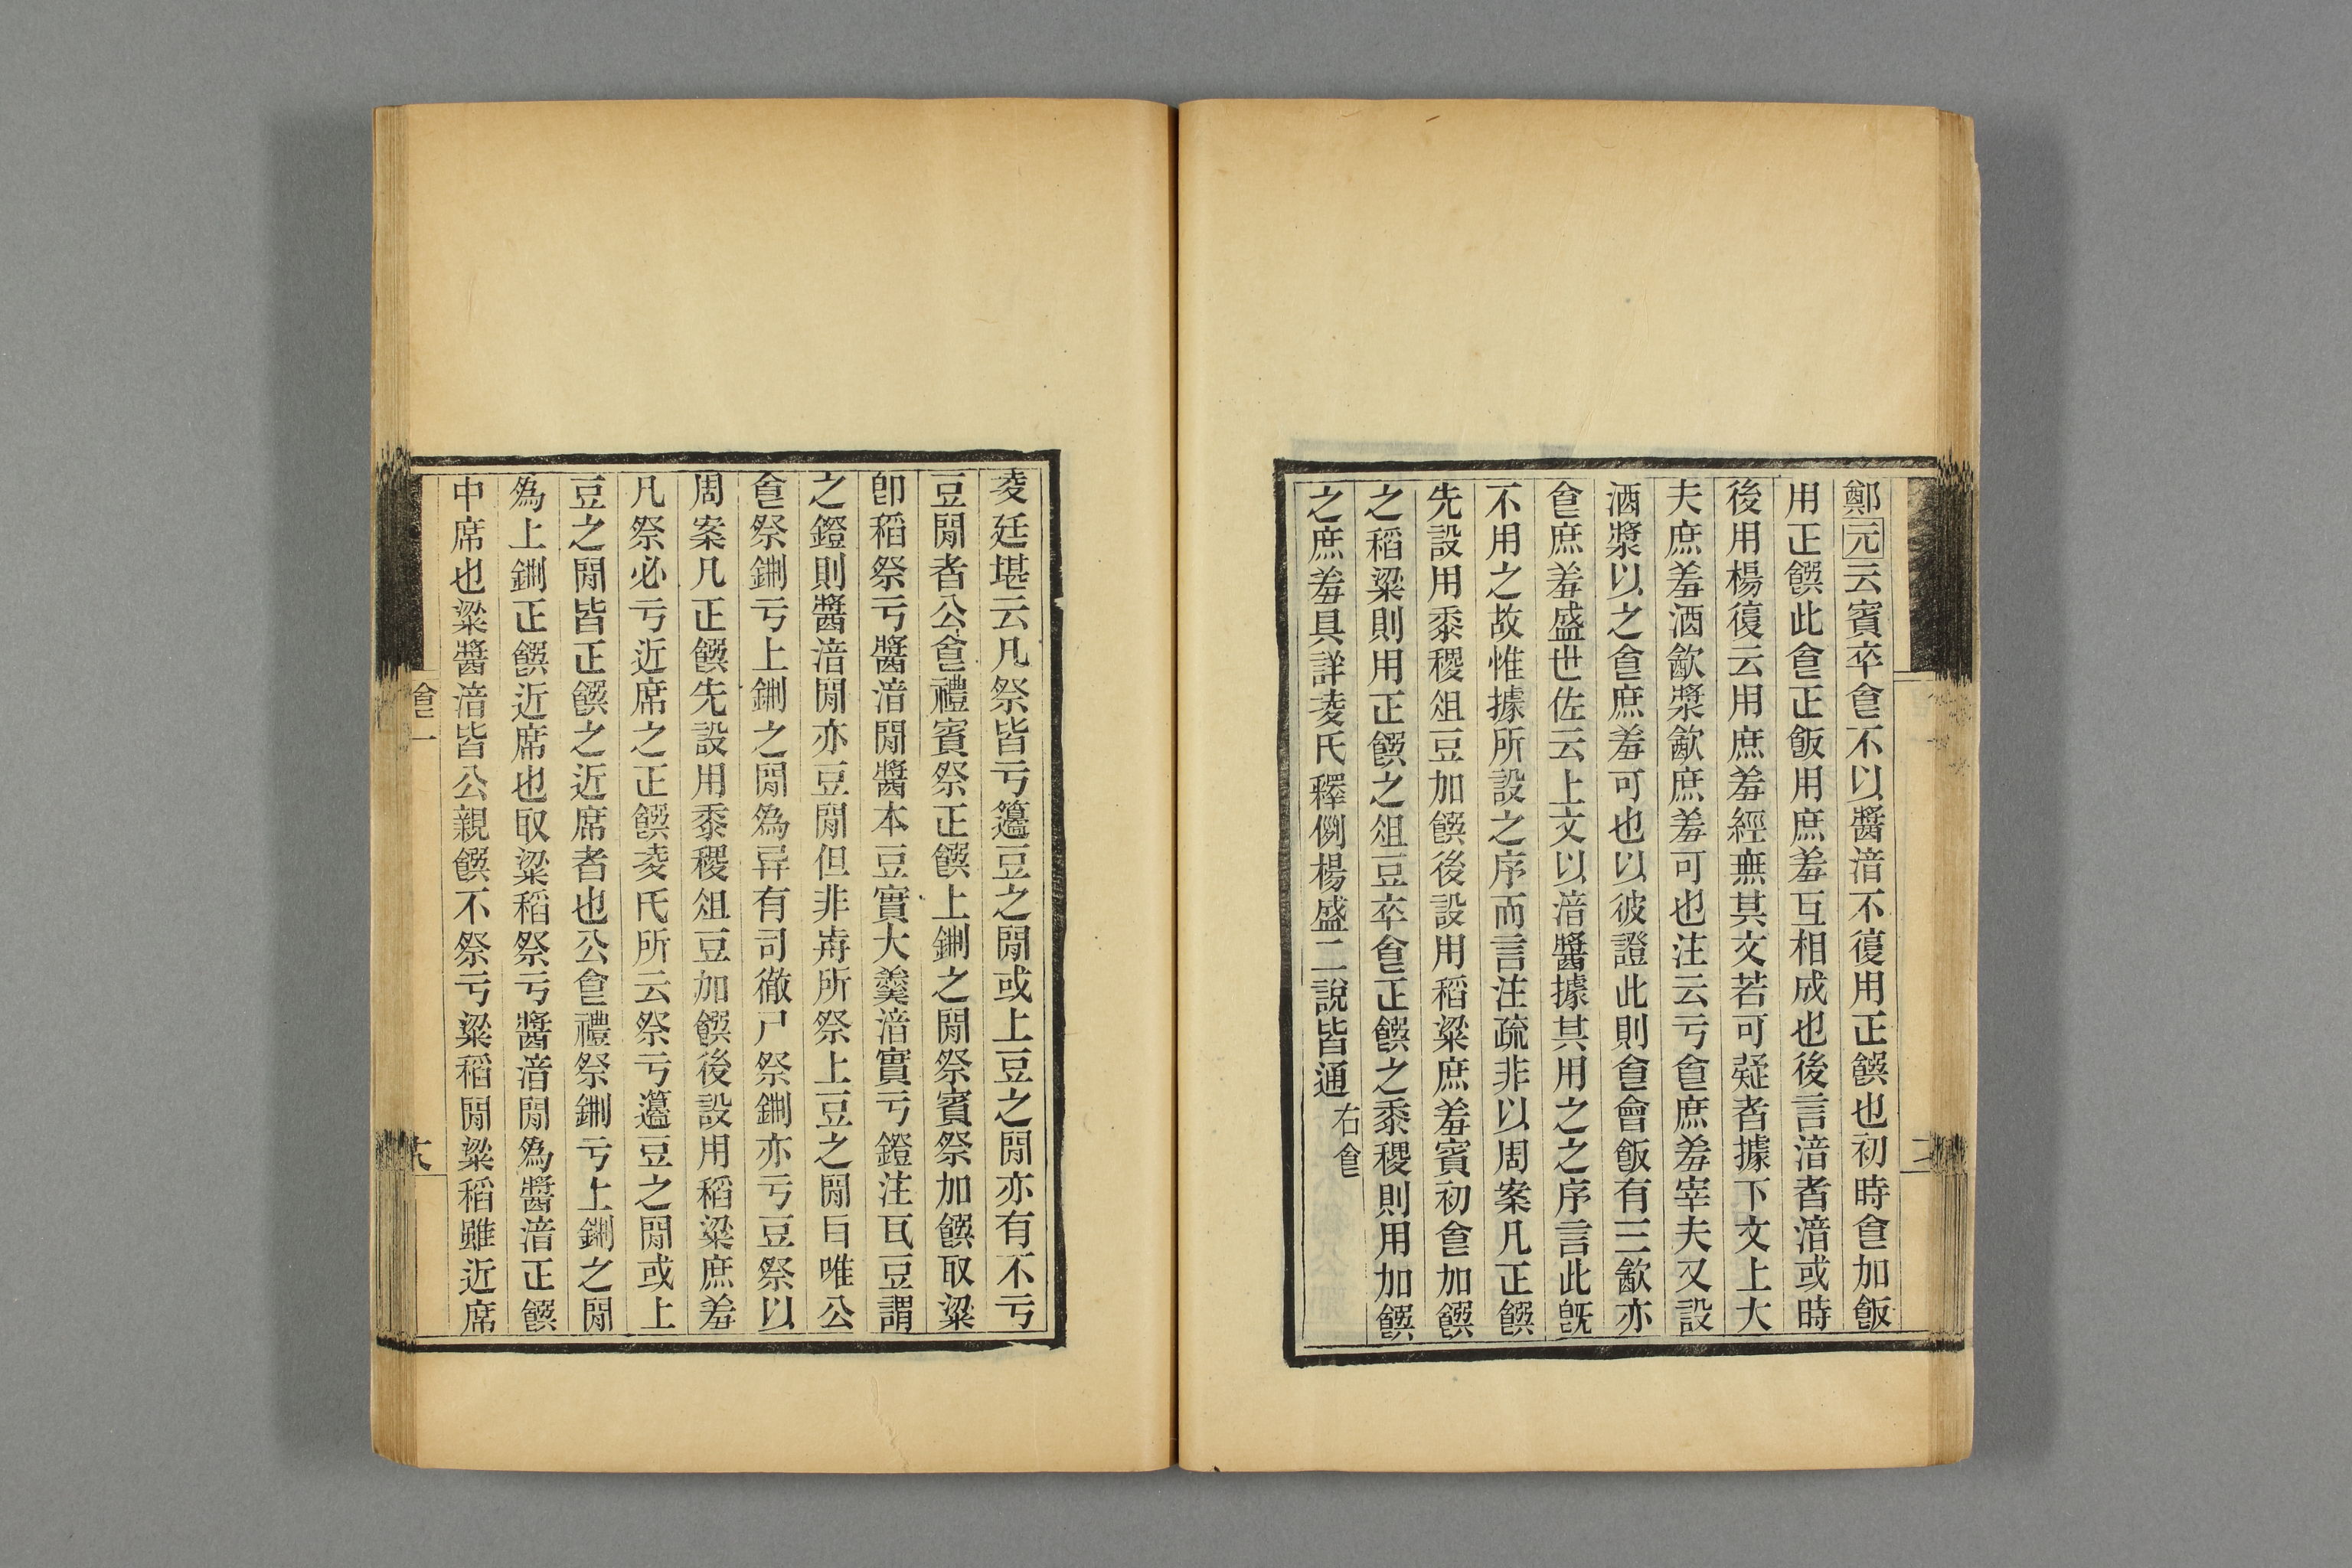 鄭元云賓卒食不以醬湆不復用正饌也初時食加飯
用正饌此食正飯用庶羞互相成也後言湆者湆或時
後用楊復云用庶羞經無其文若可疑者據下文上大
夫庶羞酒歠漿歠庶羞可也注云亏食庶羞宰夫又設
酒漿以之食庶羞可也以彼證此則食會飯有三歠亦
食庶羞盛世佐云上文以湆醬據其用之之序言此旣
不用之故惟據所設之序而言注疏非以周案凡正饌
先設用黍稷俎豆加饌後設用稻粱庶羞賓初食加饌
之稻粱則用正饌之俎豆卒食正饌之黍稷則用加饌
之庶羞具詳夌氏釋例楊盛二說皆通
右食
夌廷堪云凡祭皆亏籩豆之閒或上豆之閒亦有不亏
豆閒者公食禮賓祭正饌上鉶之閒祭賓祭加饌取粱
卽稻祭亏醬湆閒醬本豆實大羹湆實亏鐙注瓦豆謂
之鐙則醬湆閒亦豆閒但非歬所祭上豆之閒㠯唯公
食祭鉶亏上鉶之閒爲异有司徹尸祭鉶亦亏豆祭以
周案凡正饌先設用黍稷俎豆加饌後設用稻粱庶羞
凡祭必亏近席之正饌夌氏所云祭亏籩豆之閒或上
豆之閒皆正饌之近席者也公食禮祭鉶亏上鉶之閒
爲上鉶正饌近席也取粱稻祭亏醬湆閒爲醬湆正饌
中席也粱醬湆皆公親饌不祭亏粱稻閒粱稻雖近席
食一